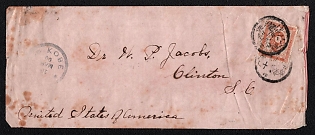 Dr. W. P. Jacobs,
Clinton
S. C.
United States of America
KOBE